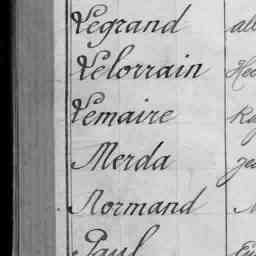 Legrand
Lelorrain
Lemaire
Merda
Normand
Paul